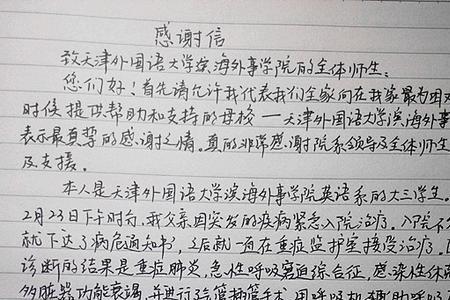 感谢信
致天津外国语大学滨海外事学院的全体师生:
您们好!首先请允许我代表我们全家向在我家最为困难
时候提供帮助和支持的母校—天津外国语大学滨海外事
表示最真挚的感谢之情。真的非常感谢院系领导及全体师生
及支援。
本人是天津外国语大学滨海外事学院英语系的大三学生。
2月23日下午时分,我父亲因突发的疾病紧急入院治疗。入院不
就下达了病危通知书,之后就一直在重症监护室接受治疗。
诊断的结果是重症肺炎,急性呼吸窘迫综合征,感染性休
多脏器功能衰竭,并进行了气管插管手术,用呼吸机